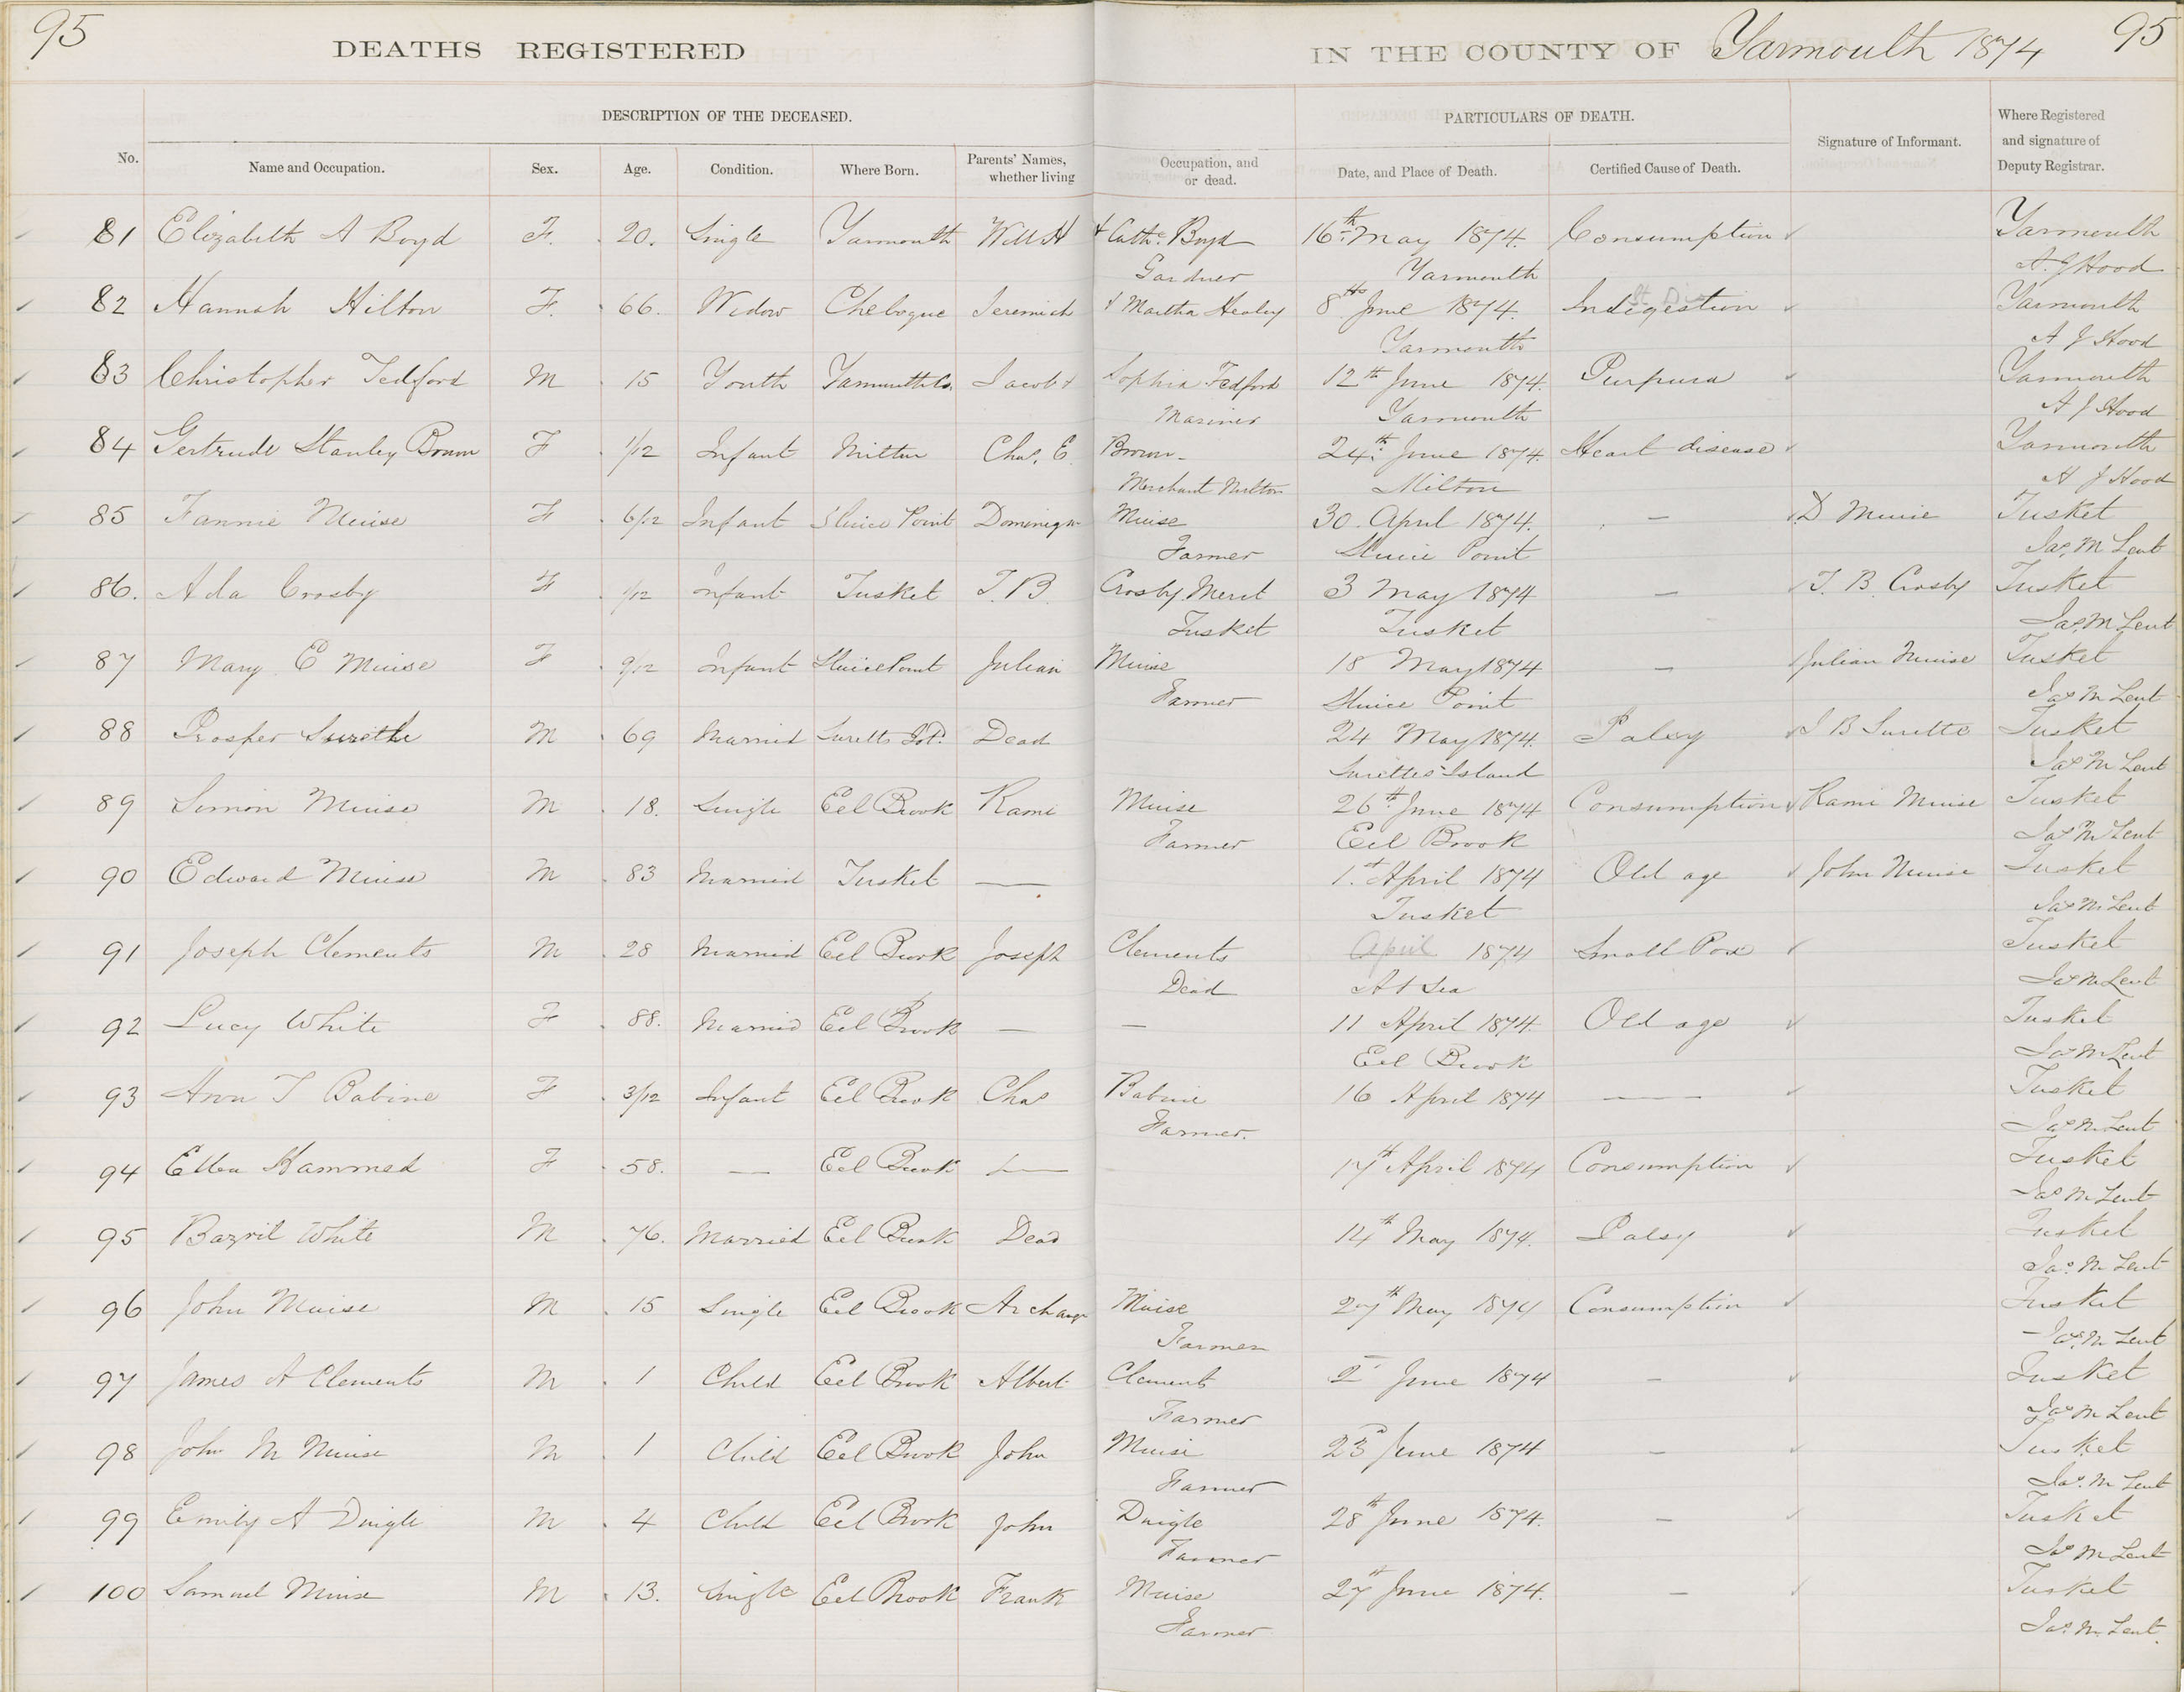 95
DEATHS REGISTERED
IN THE COUNTY OF Yarmouth 1874
95
No.
DESCRIPTION OF THE DECEASED.
PARTICULARS OF DEATH.
Signature of Informant.
Where Registered
and signature of
Deputy Registrar.
Name and Occupation.
Sex.
Age.
Condition.
Where Born.
Parents' Names,
whether living
Occupation, and
or dead.
Date, and Place of Death.
Certified Cause of Death.
81 Elizabeth A Boyd F. 20. Single Yarmouth Will H & Cathe. Boyd 16th May 1874. Consumption Yarmouth
Gardner Yarmouth A. J Hood
82 Hannah Hilton F. 66. Widow Chebogue Jeremiah & Martha Healey 8th June 1874. Indigestion Yarmouth
Yarmouth A J Hood
83 Christopher Tedford M 15 Youth Yarmouth Co. Jacob & Sophia Tedford 12th June 1874. Purpura Yarmouth
Mariner Yarmouth A J Hood
84 Gertrude Stanley Brown F 1/12 Infant Milton Chas. E. Brown 24th June 1874. Heart disease Yarmouth
Merchant Milton Milton A J Hood
85 Fannie Muise F 6/12 Infant Sluice Point Dominique Muise 30 April 1874. — D Muise Tusket
Farmer Sluice Point Jas. M Lent
86. Ada Crosby F 1/12 Infant Tusket T. B. Crosby Merct 3 May 1874 — T. B. Crosby Tusket
Tusket Tusket Jas. M Lent
87 Mary E Muise F 9/12 Infant Sluice Point Julian Muise 18 May 1874 — Julian Muise Tusket
Farmer Sluice Point Jas M Lent
88 Prosper Surette M 69 Married Suretts Isd. Dead 24 May 1874. Palsy J B Surette Tusket
Surettes Island Jas M Lent
89 Simon Muise M 18. Single Eel Brook Rami Muise 26th June 1874 Consumption Rami Muise Tusket
Farmer Eel Brook Jas M Lent
90 Edward Muise M 83 Married Tusket — 1st April 1874 Old age John Muise Tusket
Tusket Jas M Lent
91 Joseph Clements M 28 Married Eel Brook Joseph Clements April 1874 Small Pox Tusket
Dead At Sea Jas M Lent
92 Lucy White F 88. Married Eel Brook — — 11 April 1874. Old age Tusket
Eel Brook Jas M Lent
93 T Babine F 3/12 Infant Eel Brook Chas Babine 16 April 1874 — Tusket
Farmer. Jas M Lent
94 Ellen F 58. — Eel Brook — 17th April 1874 Consumption Tusket
Jas M Lent
95 Bazril White M 76. Married Eel Brook Dead 14th May 1874. Palsy Tusket
Jas. M Lent
96 John Muise M 15 Single Eel Brook Archange Muise 27th May 1874 Consumption Tusket
Farmer Jas. M Lent
97 James A Clements M 1 Child Eel Brook Albert Clements 2 June 1874 — Tusket
Farmer Jas M Lent
98 John M Muise M 1 Child Eel Brook John Muise 23d June 1874 — Tusket
Farmer Jas. M Lent
99 Emily A Duigle M 4 Child Eel Brook John Duigle 28th June 1874. — Tusket
Farmer Jas M Lent
100 Samuel Muise M 13. Single Eel Brook Frank Muise 27th June 1874. — Tusket
Farmer Jas. M. Lent.